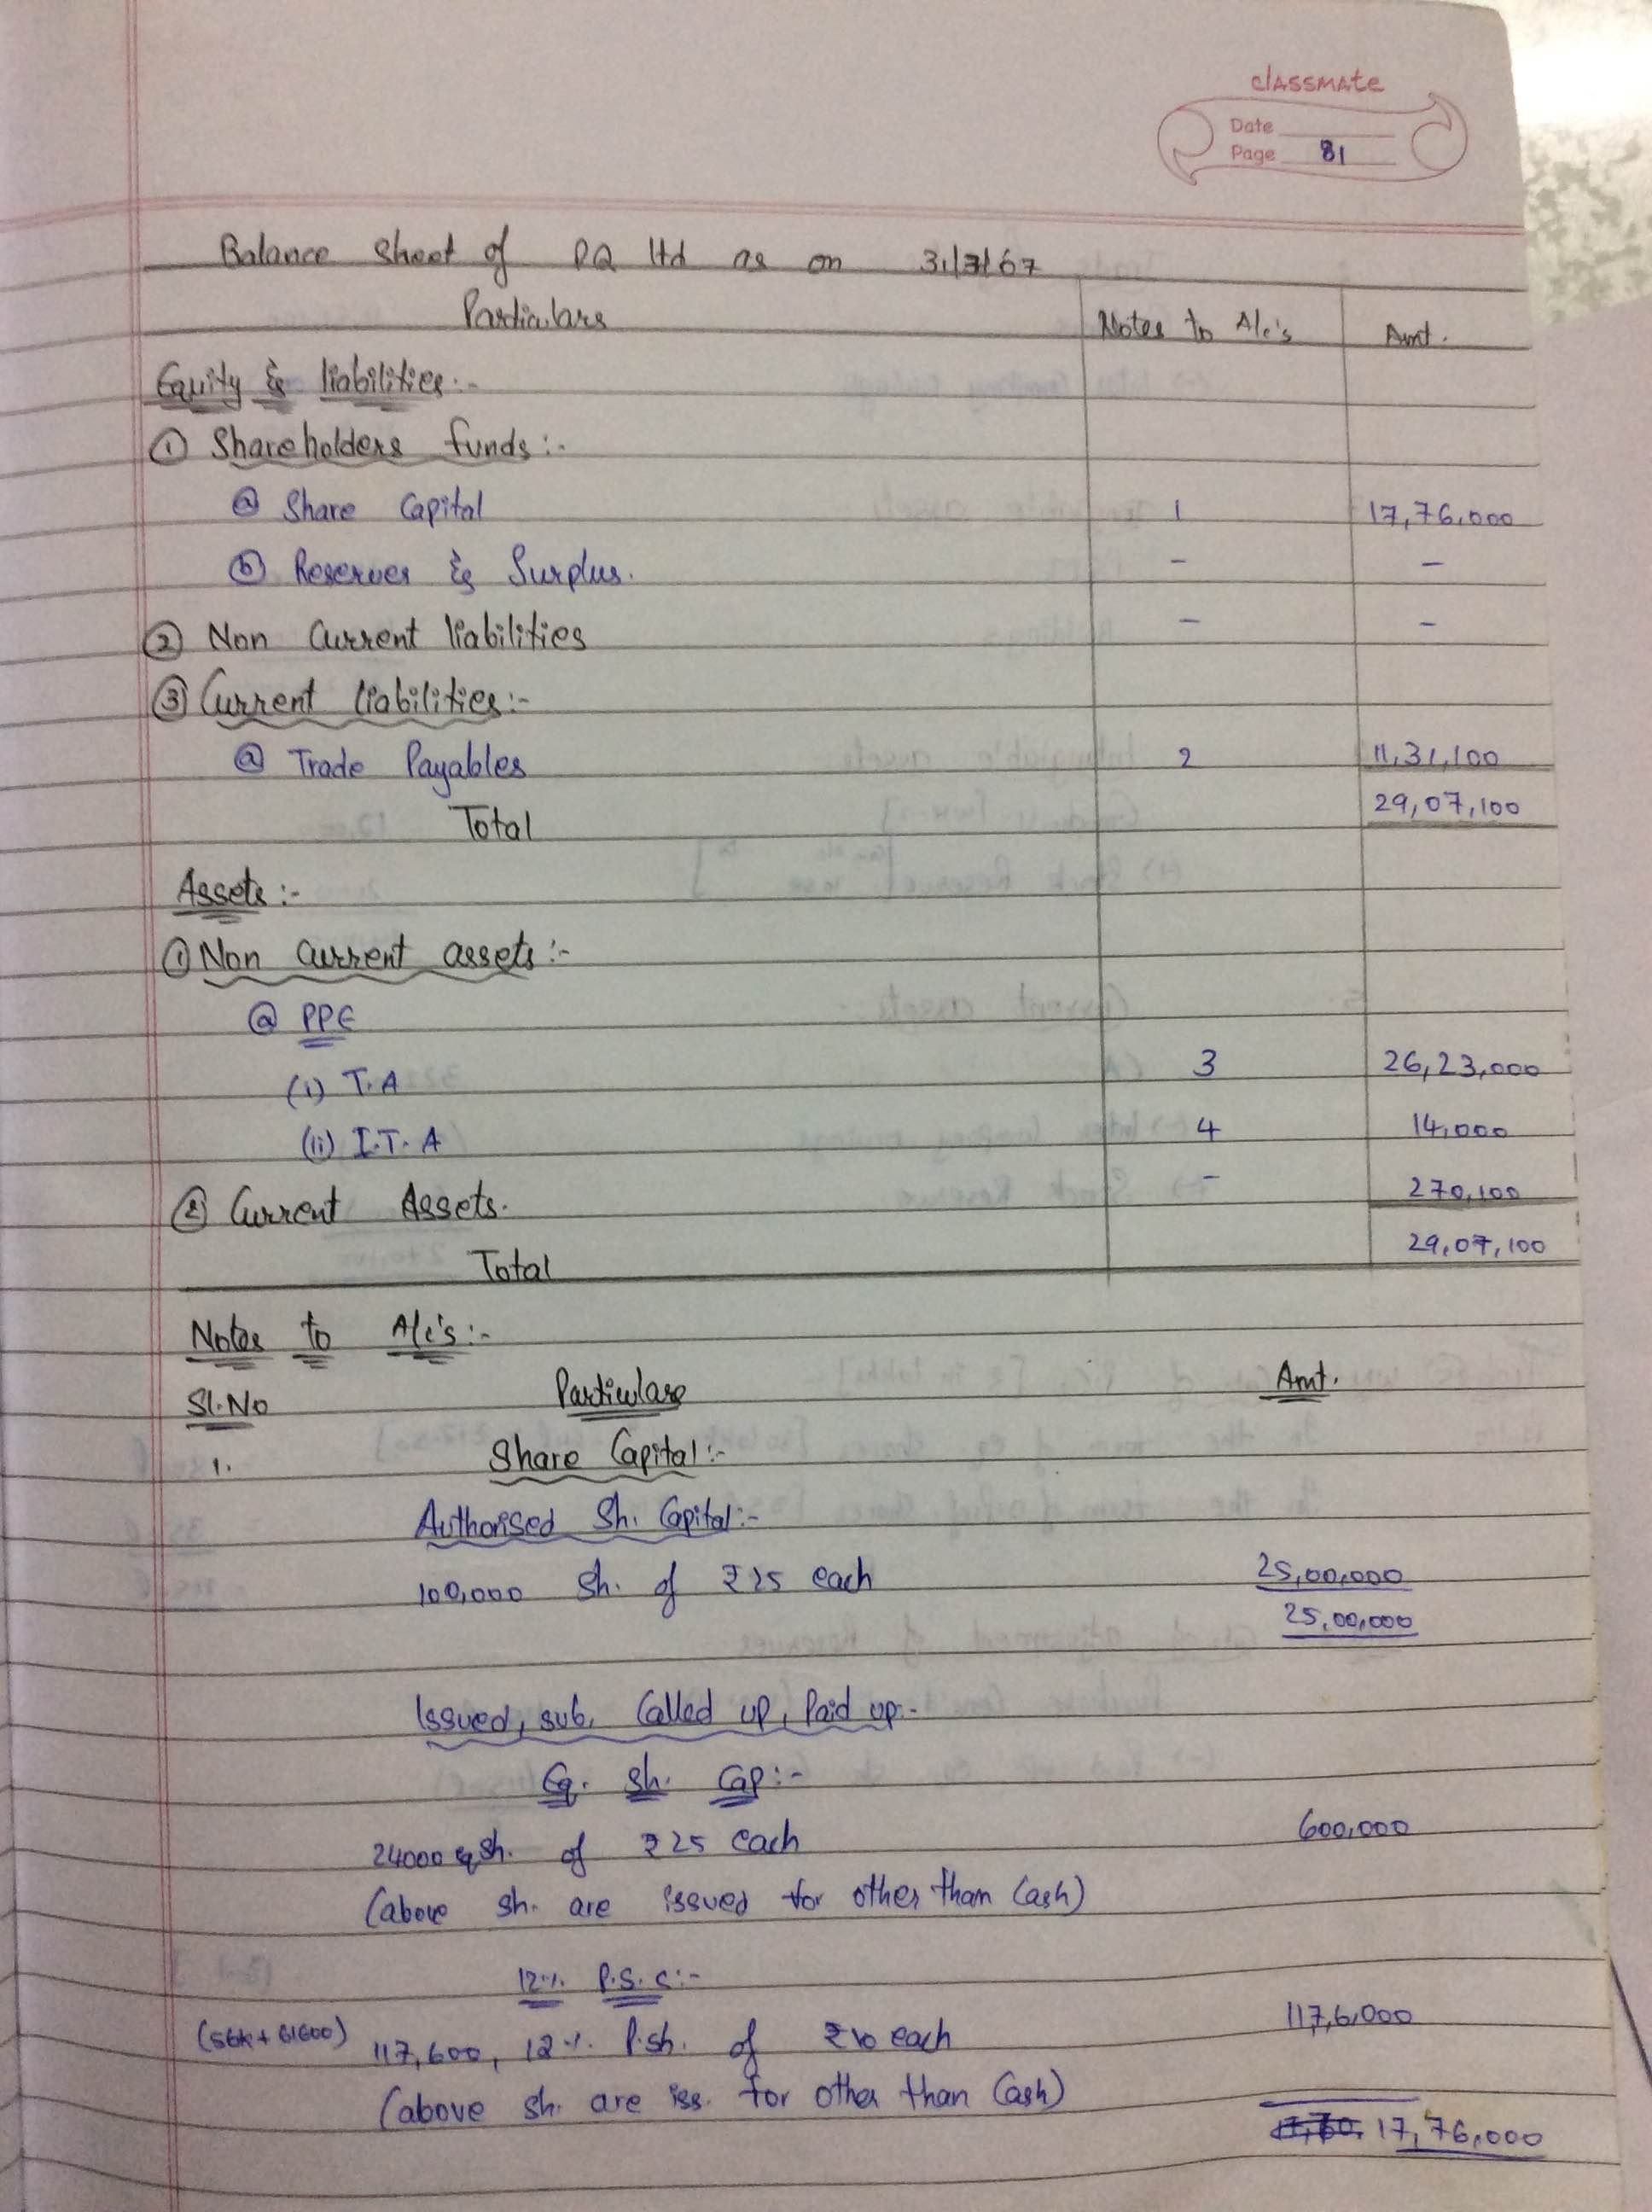 classmate
Date
Page 81
Balance Sheet of PQ ltd as on 31/3/67
Particulars Notes to A/c's Amt.
Equity & liabilities:-
① Shareholders funds:-
ⓐ Share Capital 1 17,76,000
ⓑ Reserves & Surplus. - -
② Non Current liabilities - -
③ Current liabilities:-
ⓐ Trade Payables 2 11,31,100
Total 29,07,100
Assets:-
① Non Current assets:-
ⓐ PPE
(i) T.A 3 26,23,000
(ii) I.T.A 4 14,000
② Current Assets. - 270,100
Total 29,07,100
Notes to A/c's:-
Sl.No Particulars Amt.
1. Share Capital:-
Authorised Sh. Capital:-
100,000 Sh. of ₹25 each 25,00,000
25,00,000
Issued, sub, Called up, Paid up:-
Eq. Sh. Cap:-
24000 eq sh. of ₹25 each 600,000
(above sh. are issued for other than Cash)
12% P.S.C:-
(56k+61600) 117,600, 12% P.sh. of ₹10 each 117,6,000
(above sh. are iss. for other than Cash)
17,76,000